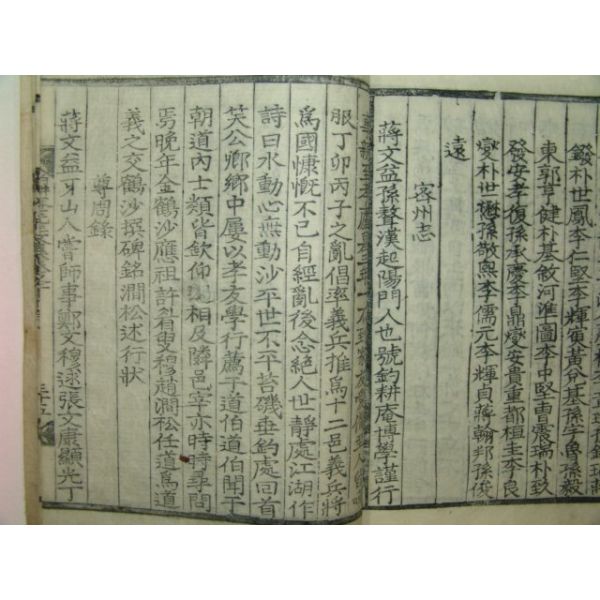 鏺朴世鳳李仁堅李輝
東郭享健朴基敘河淮圖李中堅曺震瑞朴致
發安孝復孫承慶李鼎燮安貴重都桓圭李良
燮朴世懋孫敬熙李儒元李輝貞蔣翰邦孫俊
遠
容州志
蔣文益孫鏊漢起陽門人也號釣耕庵博學謹行
服丁卯丙子之亂倡率義兵推爲十二邑義兵將
爲國慷慨不已自經亂後念絶人世靜處江湖作
詩曰水動心無動沙平世不平苔磯垂釣處回首
笑公卿鄉中屢以孝友學行薦于道伯道伯聞于
朝道內士類皆欽仰相及隣邑宰亦時時來問
焉晩年金鶴沙應祖許眉叟穆趙澗松任道爲道
義之交鶴沙撰碑銘澗松述行狀
尊周錄
蔣文益牙山人嘗師事鄭文穆逑張文康顯光丁